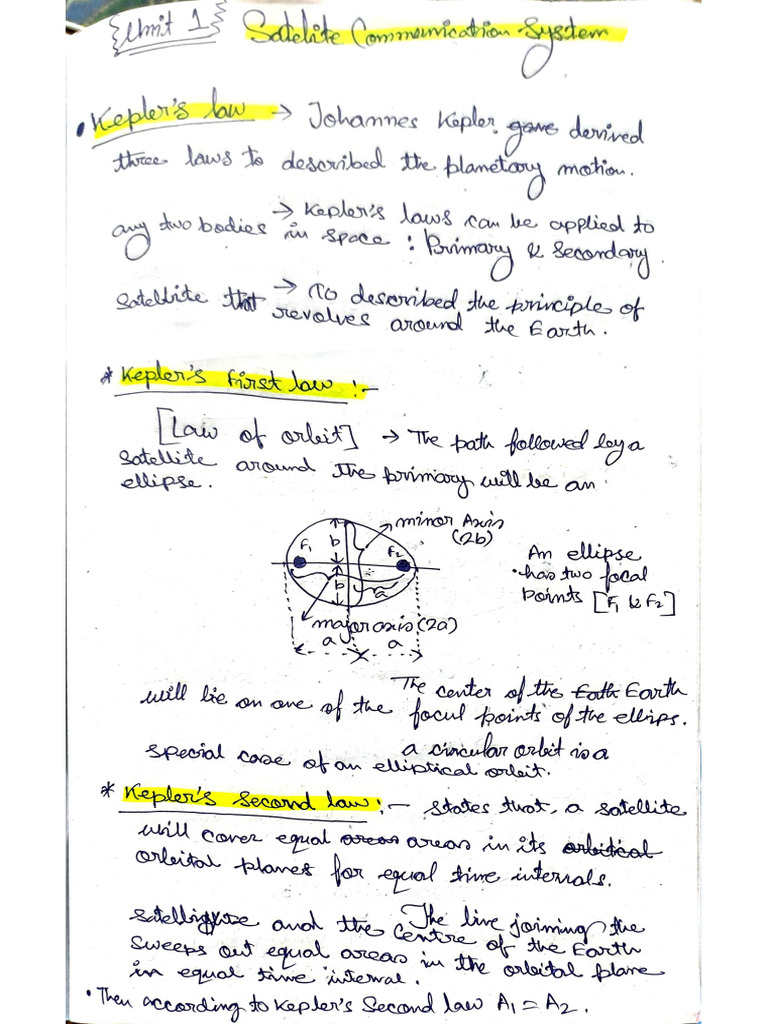 Unit 1 Satelite Communication System
• Kepler's law → Johannes Kepler gave derived
three laws to described the planetary motion.
→ Kepler's laws can be applied to
any two bodies in space : Primary & Secondary.
→ To described the principle of
satellite that revolves around the Earth.
* Kepler's first law :-
[Law of orbit] → The path followed by a
satellite around the primary will be an
ellipse.
minor Axis
(2b)
F1
b
F2
b
a
An ellipse
• has two focal
points [F1 & F2]
major axis (2a)
a
a
The center of the Eath Earth
will lie on one of the focul points of the ellips.
a circular orbit is a
special case of an elliptical orbit.
* Kepler's Second law :- states that, a satellite
will cover equal areas areas in its orbitical
orbital planes for equal time internals.
The line joining the
satellite and the centre of the Earth
sweeps out equal areas in the orbital plane
in equal time internal.
• Then according to Kepler's Second law A1 = A2.